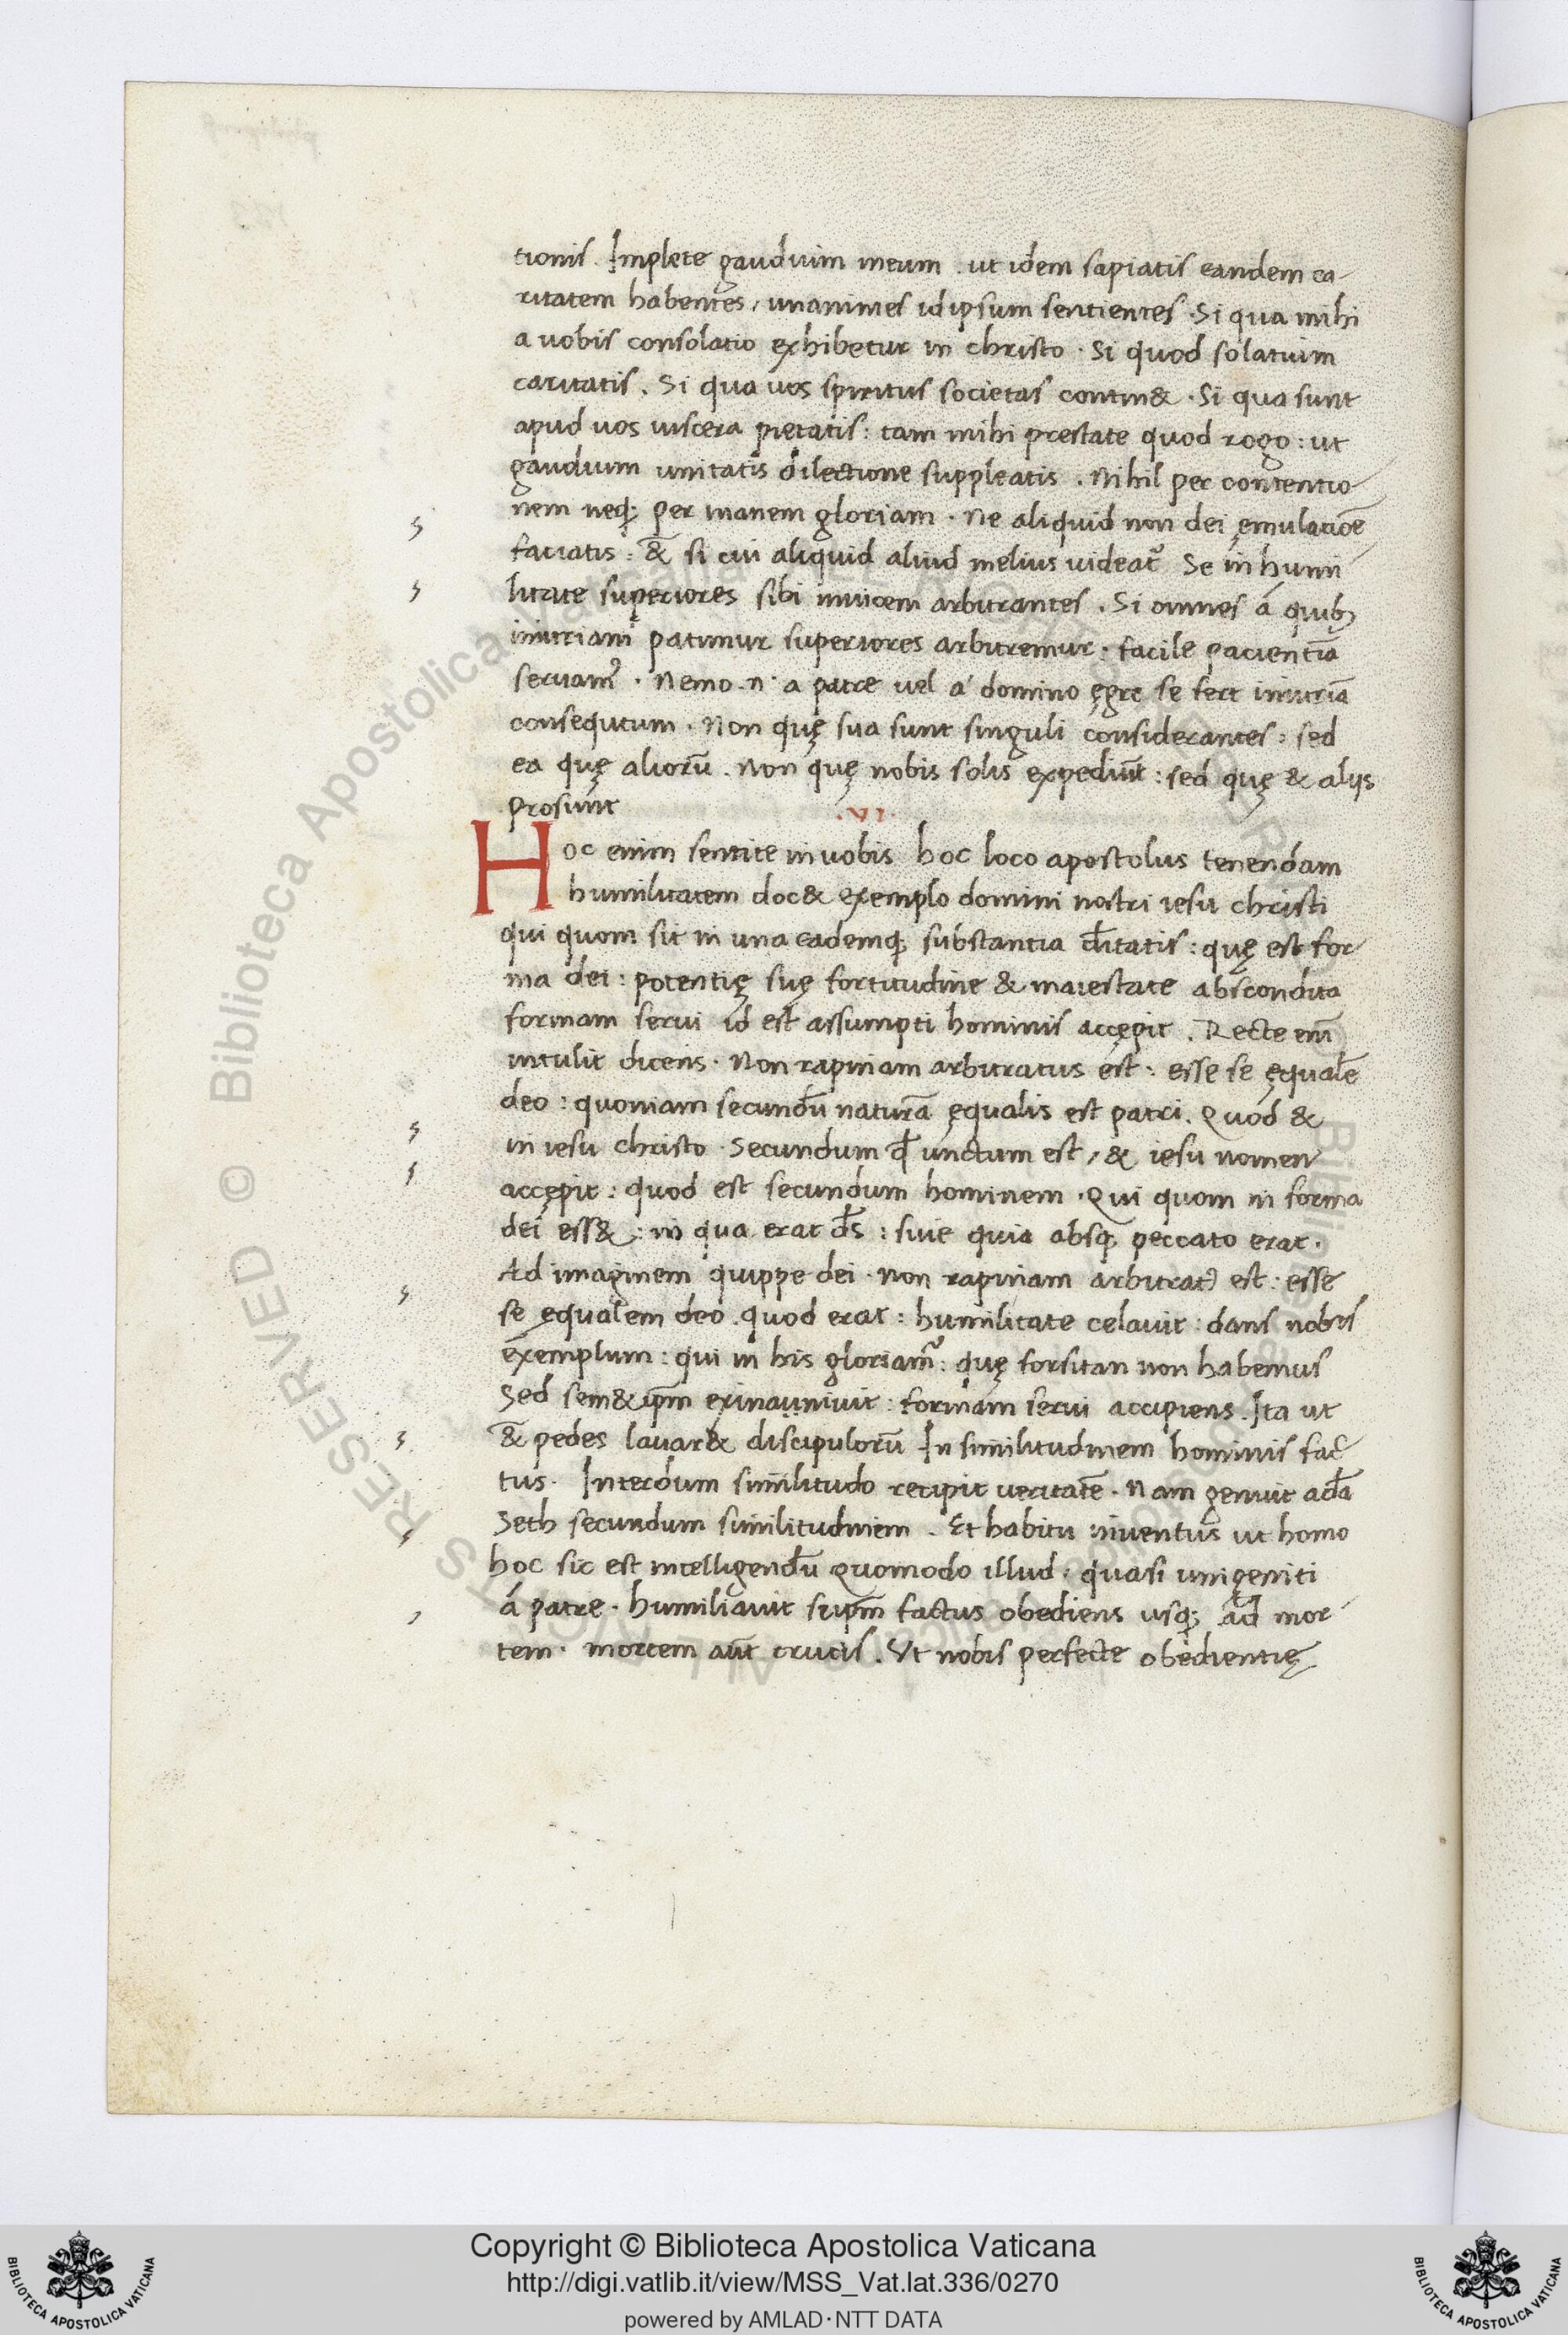 tionis. Implete gaudium meum . ut idem sapiatis eandem ca-
ritatem habentes, unanimes idipsum sentientes . Si qua mihi
a uobis consolatio exhibetur in christo . Si quod solatium
caritatis . Si qua uos spiritus societas contin& . Si qua sunt
apud uos uiscera pietatis : tam mihi prestate quod rogo : ut
gaudium unitatis dilectione suppleatis . Nihil per contentio
nem neq; per inanem gloriam . Ne aliquid non dei ęmulatiōe
faciatis : & si cui aliquid aliud melius uideat᷑ Se in humi
litate superiores sibi inuicem arbitrantes . Si omnes á quib;
iniuriam patimur superiores arbitremur : facile pacientiā
seruam᷑ . Nemo .n. a patre uel a' domino ęgre se fert iniuriā
consequtum . Non quę sua sunt singuli considerantes : sed
ea quę aliorū . Non quę nobis solis expediūt : sed quę & alijs
prosunt
.VI.
Hoc enim sentite in uobis hoc loco apostolus tenendam
humilitatem doc& exemplo domini nostri iesu christi
qui quom sit in una eademq; substantia d̄itatis : quę est for
ma dei : potentię suę fortitudine & maiestate abscondita
formam serui id est assumpti hominis accępit . Recte em̄
intulit dicens . Non rapinam arbitratus est : esse se ęqualē
deo : quoniam secundū naturā ęqualis est patri . Quod &
in iesu christo . Secundum qđ unctum est, & iesu nomen
accępit : quod est secundum hominem . Qui quom in forma
dei ess& : in qua erat d̄s : siue quia absq; peccato erat .
Ad imaginem quippe dei . non rapinam arbitrat᷒ est : esse
se ęqualem deo . quod erat : humilitate celauit : dans nobis
exemplum : qui in his gloriam᷑ : quę forsitan non habemus
Sed sem&ip̄m exinauniuit : formam serui accipiens . Ita ut
& pedes lauar& discipulorū In similitudinem hominis fac
tus . Interdum similitudo recipit ueritatē . Nam genuit adā
Seth secundum similitudinem . Et habitu inuentus ut homo
hoc sic est intelligendū Quomodo illud . quasi unigeniti
á patre . humiliauit seip̄m factus obediens usq; ad mor
tem . mortem aūt crucis . Ut nobis perfecte obedientię
Copyright © Biblioteca Apostolica Vaticana
http://digi.vatlib.it/view/MSS_Vat.lat.336/0270
powered by AMLAD·NTT DATA